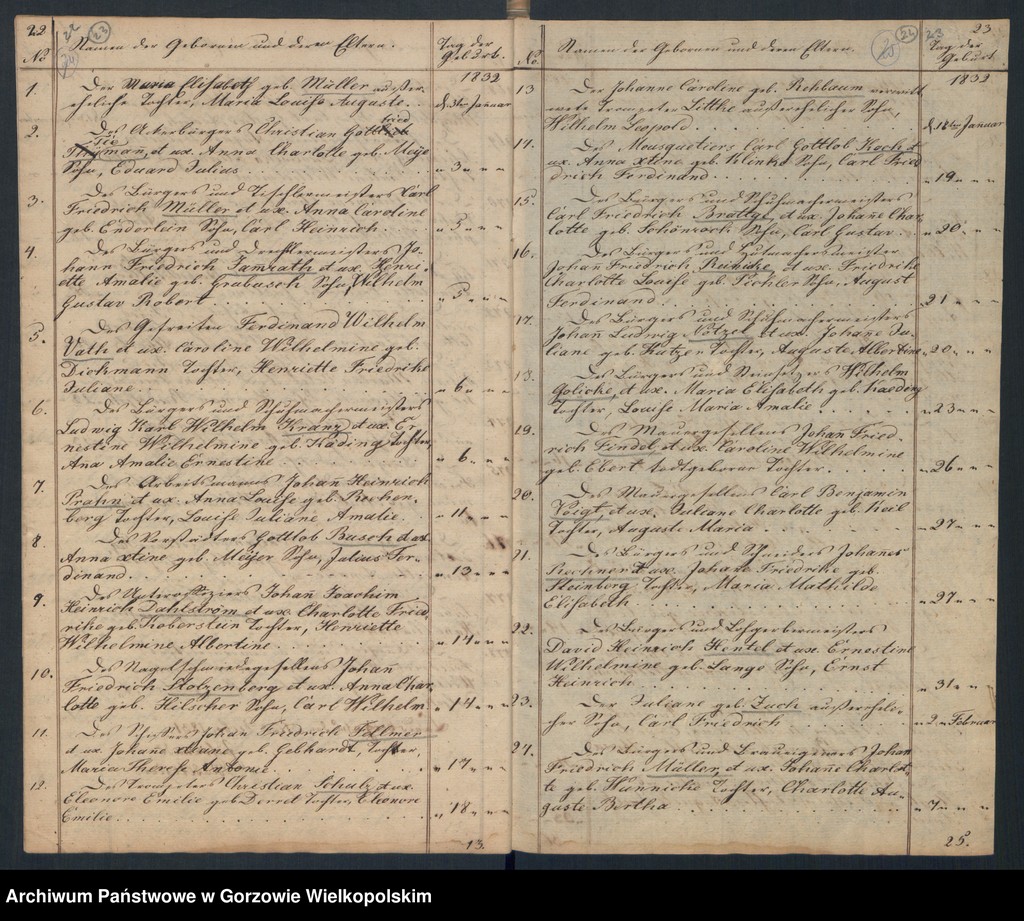 22
22
23
24
No
Namen der Geborenen und deren Eltern.
Tag der
Geburt.
1832
1.
Der Maria Elisabeth geb. Müller außer-
eheliche Tochter, Maria Louise Auguste.
d. 3ten Januar
2.
Des Ackerbürgers Christian Gottfried
Thiemañ, et ux. Anna Charlotte geb.
Sohn, Eduard Julius
" 3 " "
3.
Des Bürgers und Tischlermeisters Carl
Friedrich Müller et ux. Anna Caroline
geb. Enderlein Sohn, Carl Heinrich.
" 5 " "
4.
Des Bürgers und Drechslermeisters Jo-
hann Friedrich Jamrath et ux. Henri-
ette Amalie geb. Grabusch Sohn, Wilhelm
Gustav Robert
" 5 " "
5.
Des Gefreiten Ferdinand Wilhelm
Vath et ux. Caroline Wilhelmine geb.
Dickmann Tochter, Henriette Friedrike
Juliane.
" 6 " "
6.
Des Bürgers und Schuhmachermeisters
Ludwig Karl Wilhelm Kranz et ux. Er-
nestine Wilhelmine geb. Käding Tochter,
Ana Amalie Ernestine
" 6 " "
7.
Des Arbeitsmanns Johañ Heinrich
Prahn et ux. Anna Louise geb. Rechen-
berg Tochter, Louise Juliane Amalie.
" 11 " "
8.
Des Vorstädters Gottlob Busch et ux.
Anna Xtine geb. Meijer Sohn, Julius Fer-
dinand.
" 13 " "
9.
Des Unteroffiziers Johañ Joachim
Heinrich Dahlström et ux. Charlotte Fried-
rike geb. Koberstein Tochter, Henriette
Wilhelmine Albertine
" 14 " "
10.
Des Nagelschmiedegesellens Johañ
Friedrich Stolzenberg et ux. Anna Char-
lotte geb. Hilscher Sohn, Carl Wilhelm
" 14 " "
11.
Des Johañ Friedrich Fellmer
et ux. Johañe Xtiane geb. Gebhardt, Tochter,
Maria Therese Antonie.
" 17 " "
12.
Des Trompeters Christian Schulz et ux.
Eleonore Emilie geb. Tochter, Eleonore
Emilie
" 18 " "
13.
23.
23
No.
Namen der Geborenen und deren Eltern.
Tag der
Geburt.
1832
13
Der Johanne Caroline geb. Rehbaum verwitt-
wete Trompeter Litthe außerehelicher Sohn,
Wilhelm Leopold
d. 18ten Januar
14.
Des Mousquetiers Carl Gottlob Koch et
ux. Anna Xtine geb. Klinke Sohn, Carl Fried-
rich Ferdinand.
" 19 " "
15.
Des Bürgers und Schuhmachermeisters
Carl Friedrich et ux. Johañe Char-
lotte geb. Schönrock Sohn, Carl Gustav.
" 20 " "
16.
Des Bürgers und Hutmachermeisters
Johañ Friedrich et ux. Friedrike
Charlotte Louise geb. Pichler Sohn, August
Ferdinand.
21 " "
17.
Des Bürgers und Schuhmachermeisters
Johañ Ludwig Nötzel et ux. Johañe Ju-
liane geb. Tochter, Auguste Albertine
" 20 " "
18.
Des Bürgers und Steinsetzers Wilhelm
Golicke, et ux. Maria Elisabeth geb. Kaeding
Tochter, Louise Maria Amalie
" 23 " "
19.
Des Mauergesellens Johañ Fried-
rich Findel et ux. Caroline Wilhelmine
geb. Ebert todtgeborne Tochter.
" 26 " "
20.
Des Mauergesellens Carl Benjamin
Voigt, et ux. Juliane Charlotte geb. Keil
Tochter, Auguste Maria
" 27 " "
21.
Des Bürgers und Schneiders Johañes
Rechner et ux. Johañe Friedrike geb.
Steinberg Tochter, Maria Mathilde
Elisabeth
" 27 " "
22.
Des Bürgers und Lohgerbermeisters
David Heinrich Hentel et ux. Ernestine
Wilhelmine geb. Lange Sohn, Ernst
Heinrich
" 31 " "
23.
Der Juliane geb. Zuch außerehelic-
her Sohn, Carl Friedrich
" 2. " Februar
24.
Des Bürgers und Braueigners Johañ
Friedrich Müller, et ux. Johañe Charlot-
te geb. Hannicke Tochter, Charlotte Au-
guste Bertha
" 7 " "
25.
Archiwum Państwowe w Gorzowie Wielkopolskim